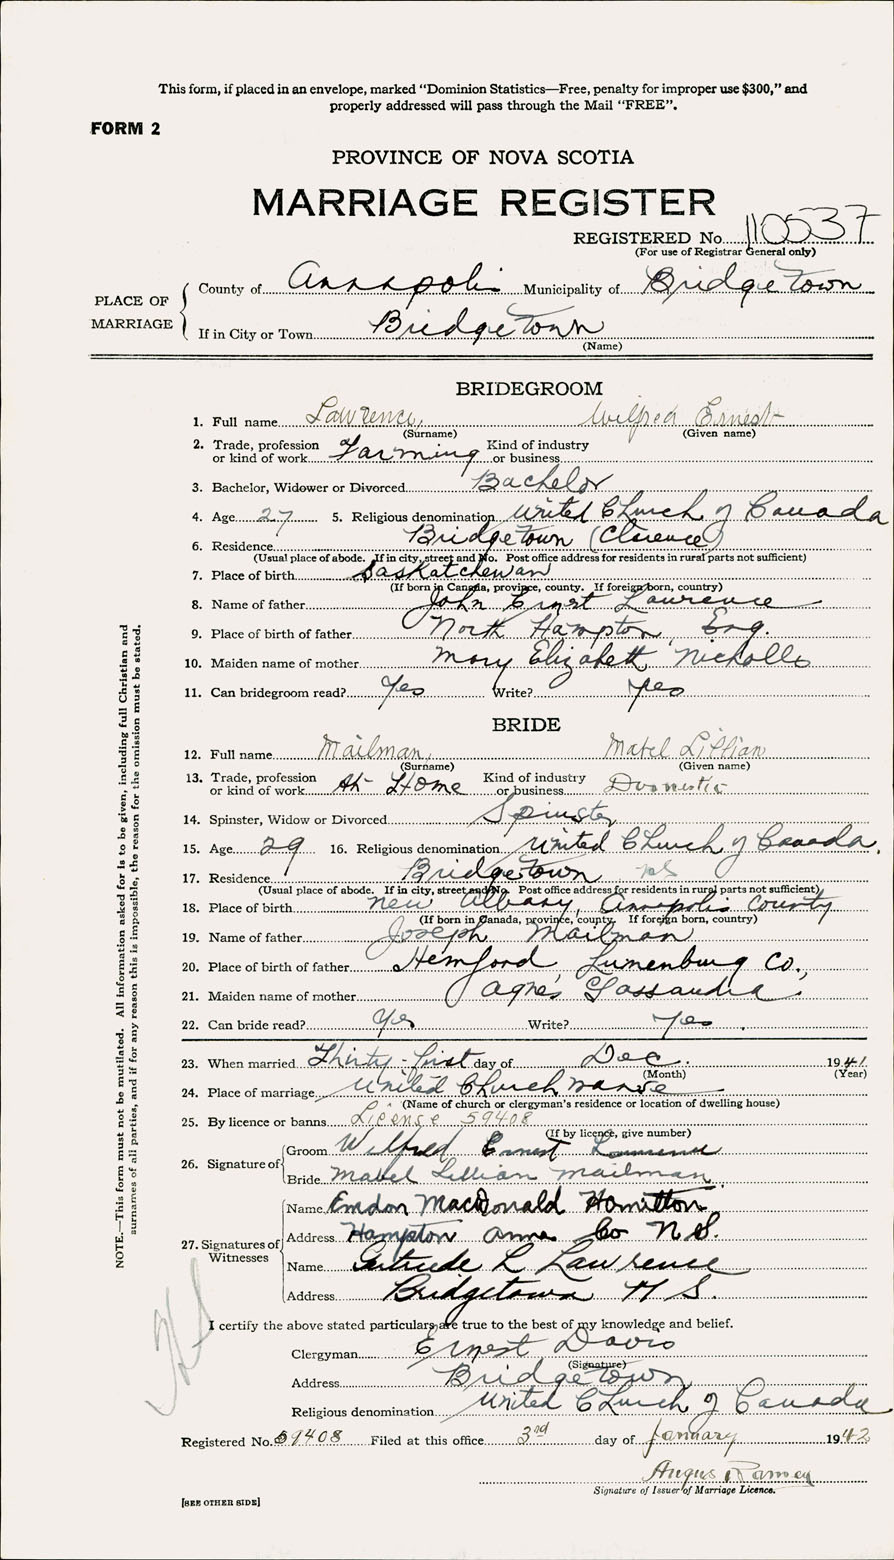 This form, if placed in an envelope, marked “Dominion Statistics—Free, penalty for improper use $300,” and
properly addressed will pass through the Mail “FREE”.
FORM 2
PROVINCE OF NOVA SCOTIA
MARRIAGE REGISTER
REGISTERED No. 110537
(For use of Registrar General only)
PLACE OF MARRIAGE
County of Annapolis Municipality of Bridgetown
If in City or Town Bridgetown
(Name)
BRIDEGROOM
1. Full name Lawrence, Wilfred Ernest
(Surname) (Given name)
2. Trade, profession or kind of work Farming Kind of industry or business
3. Bachelor, Widower or Divorced Bachelor
4. Age 27 5. Religious denomination United Church of Canada
6. Residence Bridgetown (Clarence)
(Usual place of abode. If in city, street and No. Post office address for residents in rural parts not sufficient)
7. Place of birth Saskatchewan
(If born in Canada, province, county. If foreign born, country)
8. Name of father John Ernest Lawrence
9. Place of birth of father North Hampton, Eng.
10. Maiden name of mother Mary Elizabeth Nicholls
11. Can bridegroom read? Yes Write? Yes
BRIDE
12. Full name Mailman, Mabel Lillian
(Surname) (Given name)
13. Trade, profession or kind of work At Home Kind of industry or business Domestic
14. Spinster, Widow or Divorced Spinster
15. Age 29 16. Religious denomination United Church of Canada.
17. Residence Bridgetown NS
(Usual place of abode. If in city, street and No. Post office address for residents in rural parts not sufficient)
18. Place of birth New Albany, Annapolis County
(If born in Canada, province, county. If foreign born, country)
19. Name of father Joseph Mailman
20. Place of birth of father Hemford, Lunenburg Co.,
21. Maiden name of mother Agnes
22. Can bride read? Yes Write? Yes.
23. When married Thirty-first day of Dec. 1941
(Month) (Year)
24. Place of marriage United Church manse
(Name of church or clergyman's residence or location of dwelling house)
25. By licence or banns License 59408
(If by licence, give number)
26. Signature of
Groom Wilfred Ernest Lawrence
Bride Mabel Lillian Mailman
27. Signatures of Witnesses
Name MacDonald Hamilton
Address Hampton Anna Co N.S.
Name Gertrude L Lawrence
Address Bridgetown N S.
I certify the above stated particulars are true to the best of my knowledge and belief.
Clergyman Ernest Davis
(Signature)
Address Bridgetown
Religious denomination United Church of Canada
Registered No. 59408 Filed at this office 3rd day of January 1942
Angus Ramey
Signature of Issuer of Marriage Licence.
[SEE OTHER SIDE]
NOTE.—This form must not be mutilated. All information asked for is to be given, including full Christian and
surnames of all parties, and if for any reason this is impossible, the reason for the omission must be stated.